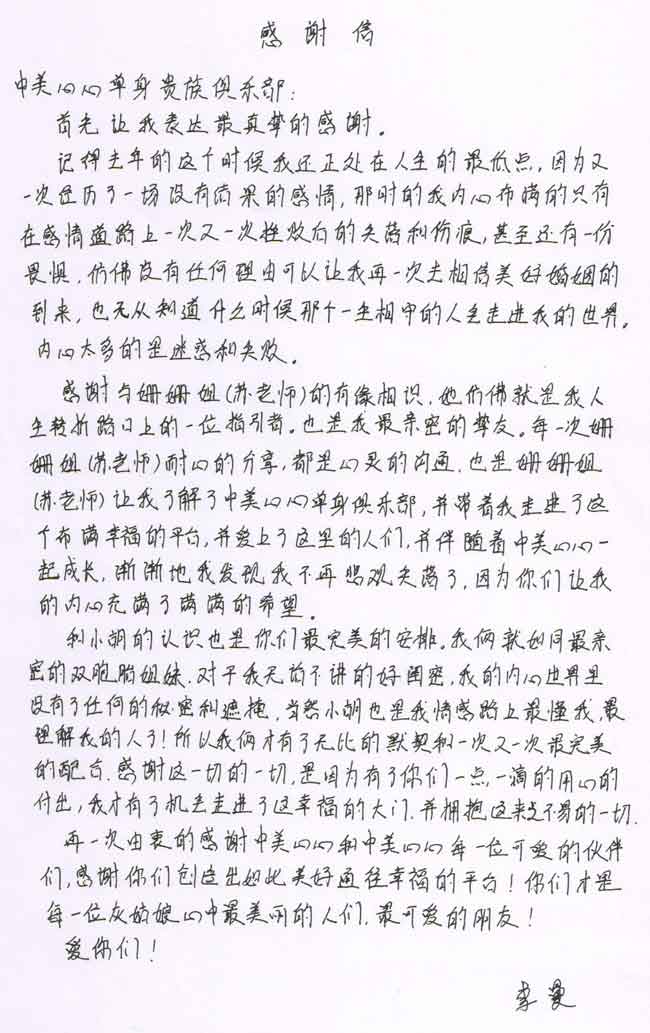 感谢信
中美心心单身贵族俱乐部:
首先让我表达最真挚的感谢。
记得去年的这个时候我还正处在人生的最低点,因为又
一次经历了一场没有结果的感情,那时的我内心布满的只有
在感情道路上一次又一次挫败后的失落和伤痕,甚至还有一份
畏惧,仿佛没有任何理由可以让我再一次去相信美好婚姻的
到来,也无从知道什么时候那个一生相守的人会走进我的世界。
内心太多的是迷惑和失败。
感谢与姗姗姐(苏老师)的有缘相识,她仿佛就是我人
生转折路口上的一位指引者。也是我最亲密的挚友。每一次姗
姗姐(苏老师)耐心的分享,都是心灵的沟通,也是姗姗姐
(苏老师)让我了解了中美心心单身俱乐部,并带着我走进了这
个布满幸福的平台,并爱上了这里的人们,并伴随着中美心心一
起成长,渐渐地我发现我不再悲观失落了,因为你们让我
的内心充满了满满的希望。
和小胡的认识也是你们最完美的安排。我俩就如同最亲
密的双胞胎姐妹.对于我无话不讲的好闺密,我的内心世界里
没有了任何的秘密和遮掩,当然小胡也是我情感路上最懂我,最
理解我的人了!所以我俩才有了无比的默契和一次又一次最完美
的配合.感谢这一切的一切,是因为有了你们一点一滴的用心的
付出,我才有了机会走进了这幸福的大门.并拥抱这来之不易的一切.
再一次由衷的感谢中美心心和中美心心每一位可爱的伙伴
们,感谢你们创造出如此美好通往幸福的平台!你们才是
每一位灰姑娘心中最美丽的人们,最可爱的朋友!
爱你们!
李曼